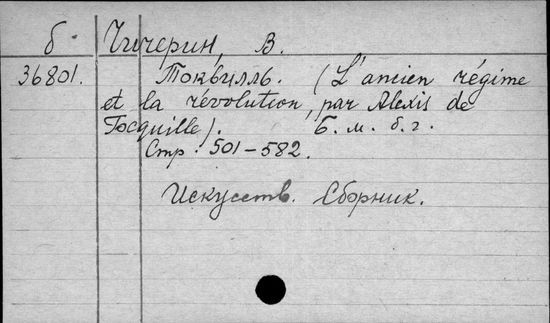 б Чичерин, В.
36801. Токвилль. (L'ancien régime
et la révolution, par Alexis de
Tocquille). Б. м. б. г.
Стр. 501-582.
Искусств. Сборник.